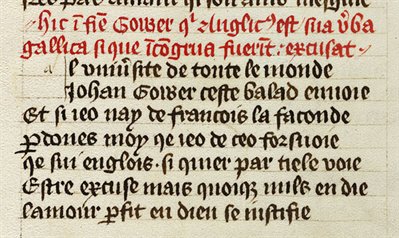 hic i͞ fi͞e Gower q͛ Anglic᷒ est sua v͛ba
gallica si que i͞co͞grua fuerint . excusat
al univ͛site de toute le monde
Johan Gower ceste balad envoie
Et si ieo nay de francois la faconde
ꝑdones moy qe ieo de ceo forsvoie
qe sui englois . si quier par tiele voie
Estre excuse mais quoiqe nuls en die
lamour ꝑfit en dieu se iustifie